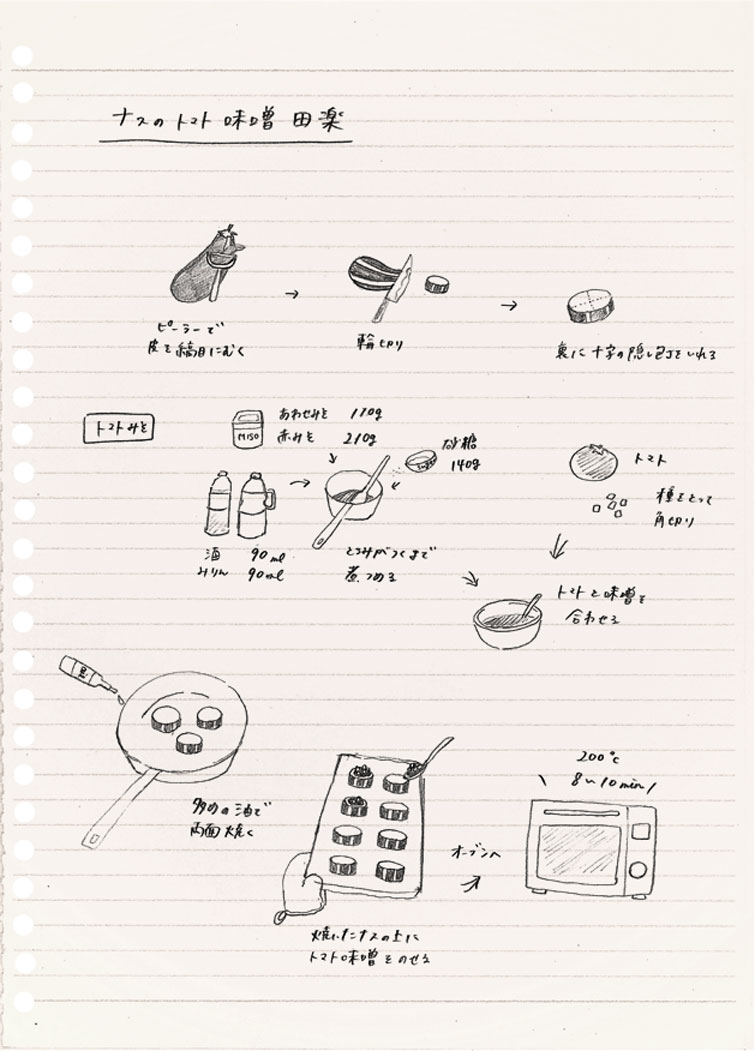 ナスのトマト味噌田楽
ピーラーで
皮を縞目にむく
輪切り
裏に十字の隠し包丁をいれる
トマトみそ
MISO
あわせみそ 170g
赤みそ 210g
砂糖
140g
酒 90ml
みりん 90ml
とろみがつくまで
煮つめる
トマト
種をとって
角切り
トマトと味噌を
合わせる
多めの油で
両面焼く
焼いたナスの上に
トマト味噌をのせる
オーブンへ
200℃
8〜10min